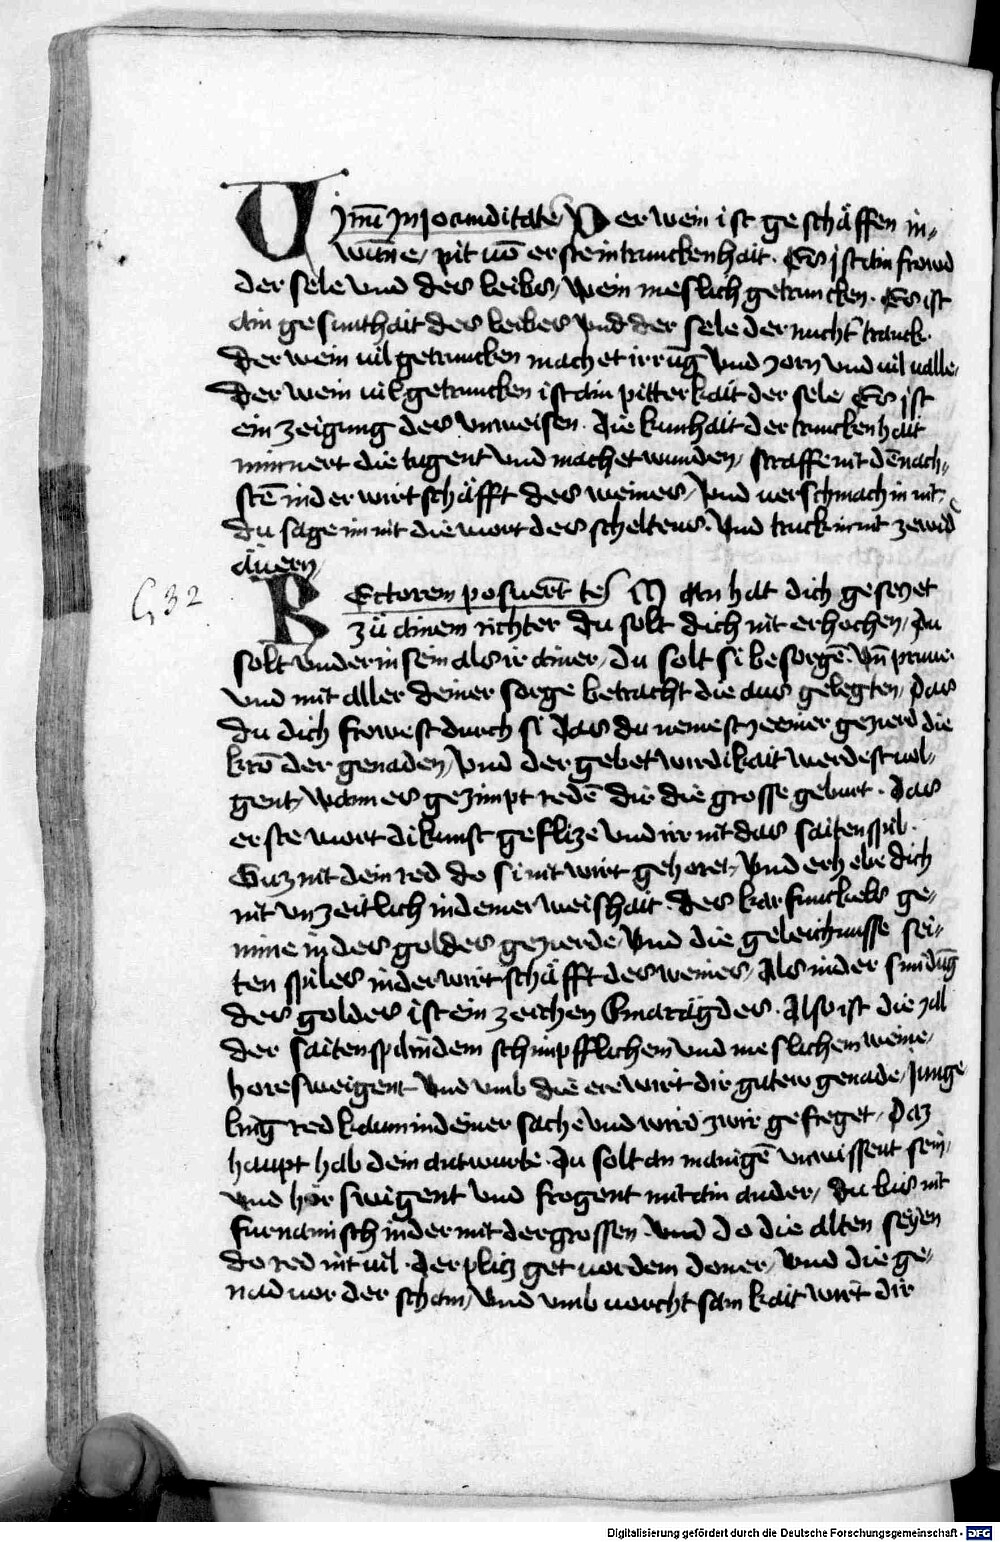 Uinū in Jocunditate Der wein ist geschäffen in
wūne / nit vō erste in trunckenhait. Es ist ain frowd
der sele vnd des leibs / wein meslich getruncken. Es ist
ain gesunthait des leibes vnd der sele der nücht tranck.
Der wein vil getruncken machet irrūg vnd zorn vnd vil valle /
Der wein vil getruncken ist ain pitterkait der sele Es ist
ein zeigung des vnweisen. die kunhait der trunckenhait
minnert die tugent vnd machet wunden / straffe nit dē nach
stē in der wirtschäfft des weines / vnd verschmach in nit
du sage im nit die wort des scheltens. vnd truck in nit ze wid
äuern /
REctorem posuerūt te Man hat dich gesetzet
zü ainem richter du solt dich nit erhochen / Du
solt vnder in sein als ir ainer / du solt si besorgē. vn̄
vnd mit aller deiner sorge betracht die aus gelegten / Das
du dich frowest durch si Das du nemest ze einer gezierd die
krō der genaden / vnd der gebet wirdikait werdest vol
gent / wann es gezimpt redē dir die grosse geburt. Das
erste wort di kunst geflize vnd irr nit das saitenspil.
Guz nit dein red do si nit wirt gehoret / vnd erhebe dich
nit vnzeitlich in deiner weishait. des karfunckels ge
mme in des goldes gezierde vnd die geleichnusse sei
ten spiles in der wirtschäfft des weines / Als in der smidūg
des goldes ist ein zeichen Smarägdes. Also ist die zal
der saitenspil in dem schimpfflichem vnd meslichem weine /
hore sweigent vnd vmb die ere wirt dir gutew genade / Junge
ling red kaum in deiner sache vnd wird zwir gefreget / Daz
haupt hab dein antwurte. Du solt an manigē vnwissent sein /
vnd hör swigent vnd fragent mit ain ander / Du bis nit
furnamisch in der mit der grossen. vnd do die alten seyen
do red nit vil. der plicz get vor dem doner / vnd die ge
nad vor der scham / vnd vmb vorchtsamkait wirt dir
G 32
Digitalisierung gefördert durch die Deutsche Forschungsgemeinschaft - DFG